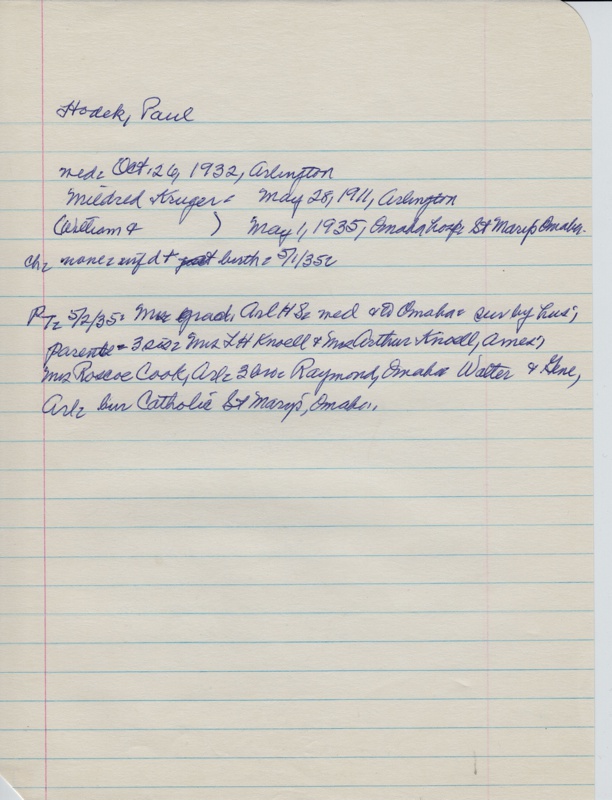 Hodek, Paul
med: Oct. 26, 1932, Arlington
Mildred Kruger: May 28, 1911, Arlington
(William & ) May 1, 1935, Omaha hosp: St Mary's Omaha.
ch: none: inf dt birth: 5/1/35:
PT: 5/2/35: Mrs grad. Arl H Sc med & to Omaha: sur by hus;
parents: 3 sis: Mrs L H Knoell & Mrs Arthur Knoell, Ames;
Mrs Roscoe Cook, Arl: 3 bro: Raymond, Omaha: Walter & Gene,
Arl: bur Catholic St Mary's, Omaha.